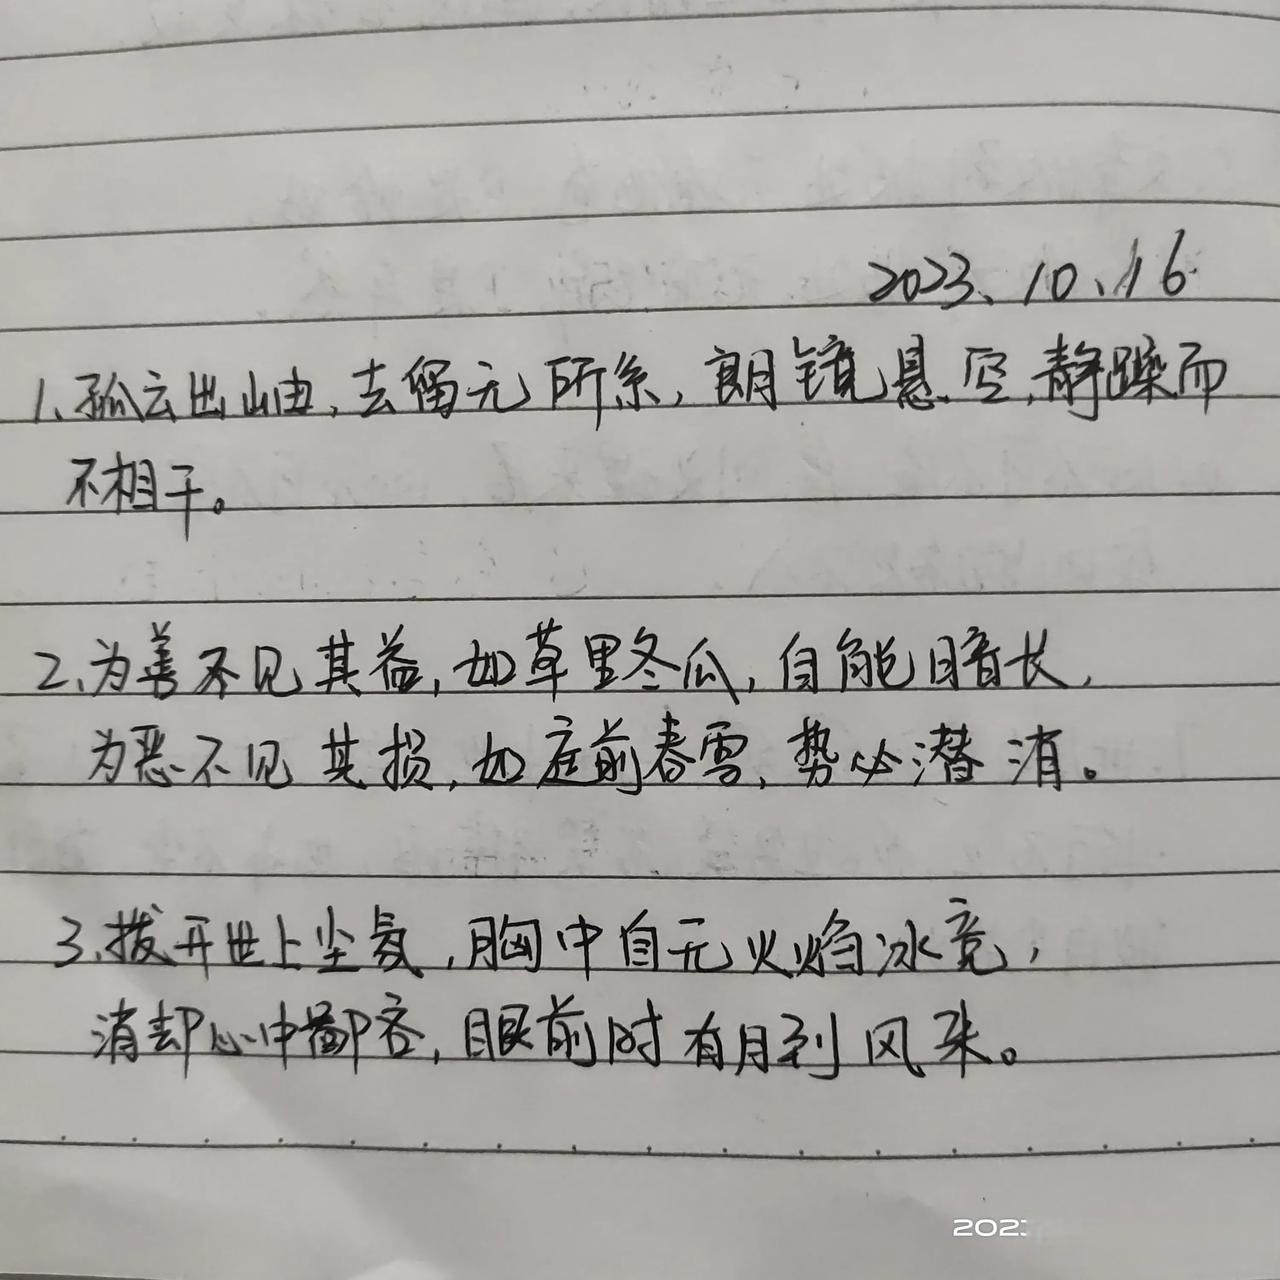 2023、10、16
1、孤云出岫,去留无所系,朗镜悬空,静躁而
不相干。
2、为善不见其益,如草里冬瓜,自能暗长,
为恶不见其损,如庭前春雪,势必潜消。
3、拨开世上尘氛,胸中自无火焰冰竞,
消却心中鄙吝,眼前时有月到风来。
2023